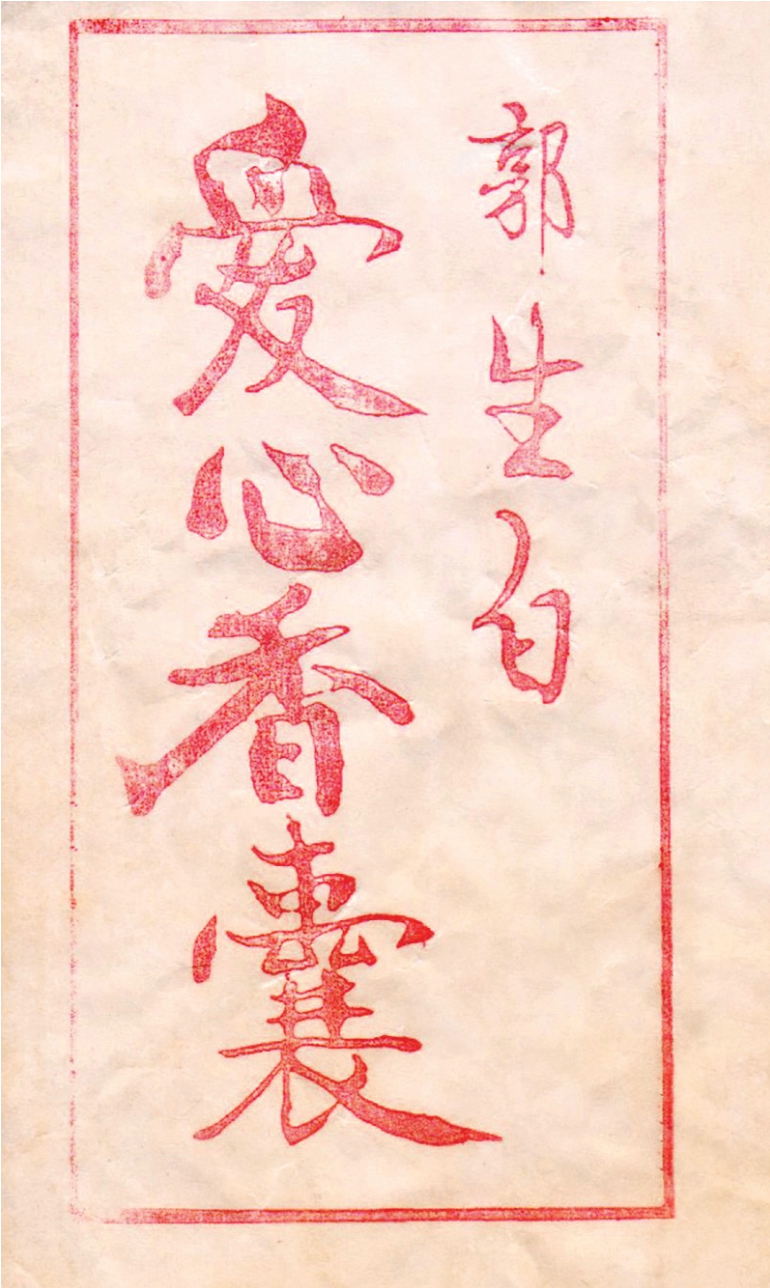 郭生白
爱心香囊